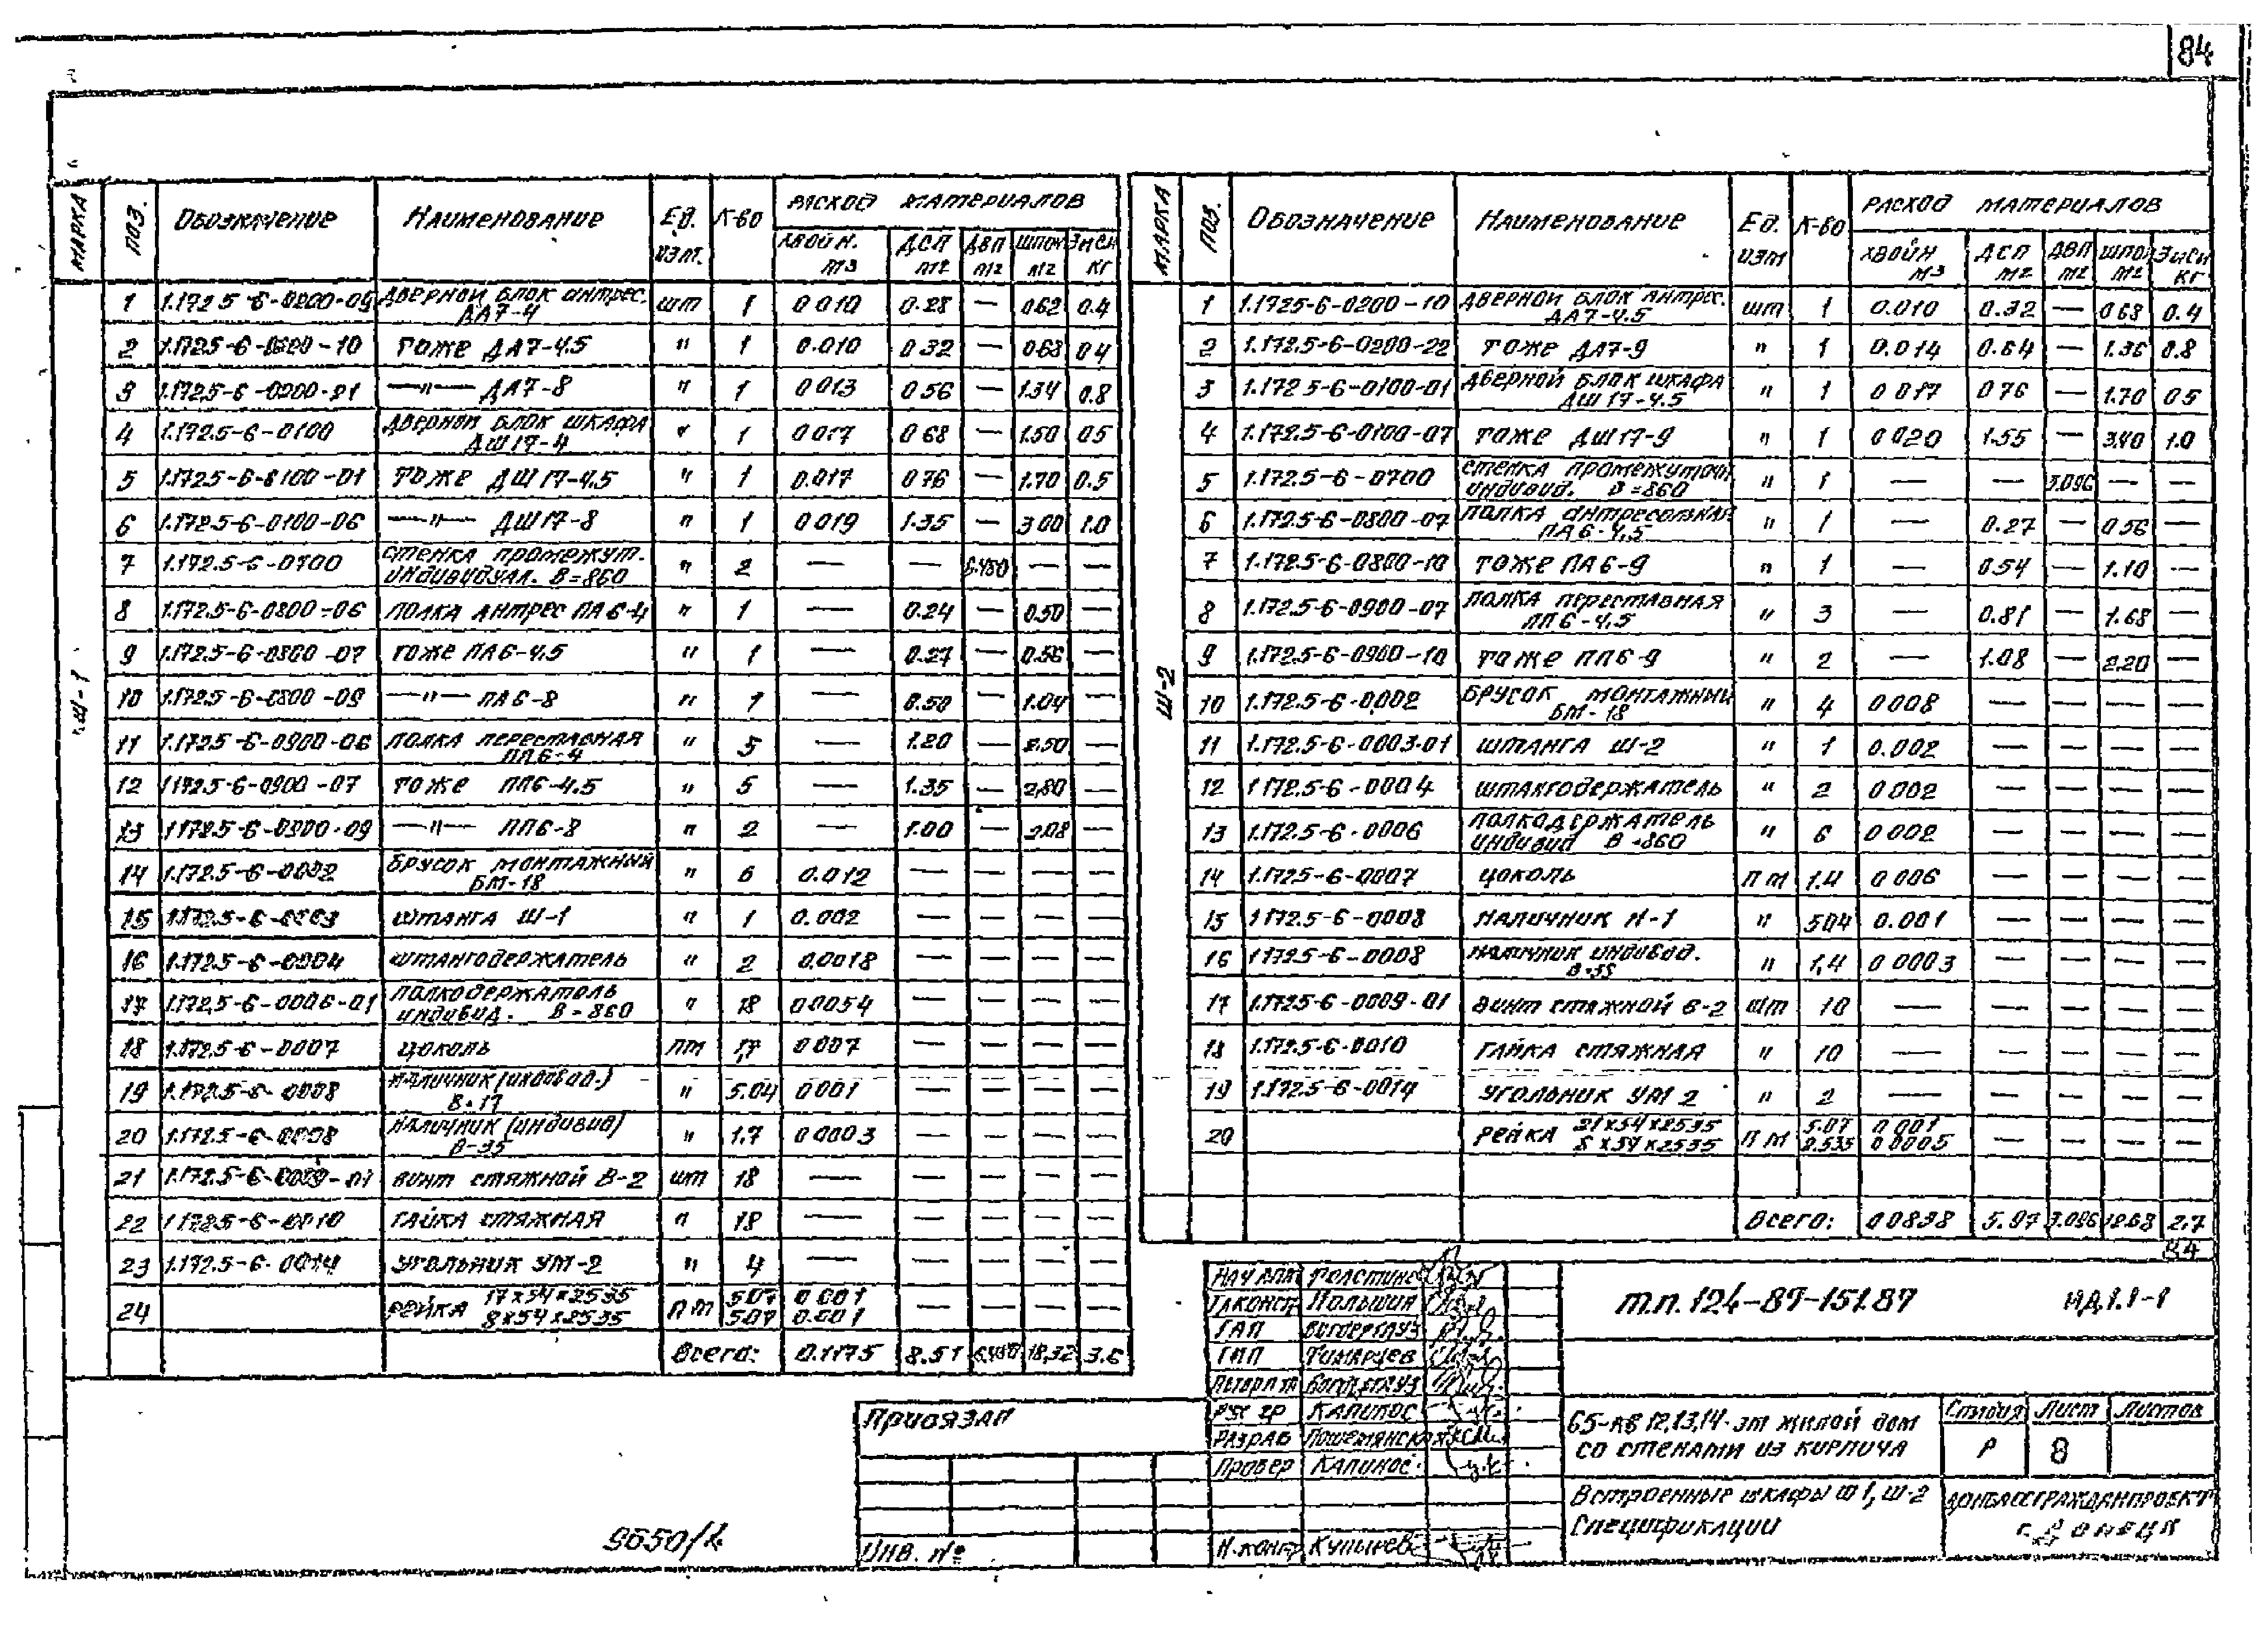 84
МАРКА ПОЗ. Обозначение Наименование Ед. изм. К-во Расход материалов
хвойн. м3 ДСП м2 ДВП м2 шпон м2 Эмсн кг
Ш-1
1 1.172.5-6-0200-09 Дверной блок антрес. ДА7-4 шт 1 0.010 0.28 — 0.62 0.4
2 1.172.5-6-0200-10 тоже ДА7-4.5 " 1 0.010 0 32 — 0.68 0 4
3 1.172.5-6-0200-21 —"— ДА7-8 " 1 0 013 0 56 — 1.34 0.8
4 1.172.5-6-0100 Дверной блок шкафа ДШ17-4 " 1 0 017 0 68 — 1.50 0 5
5 1.172.5-6-0100-01 тоже ДШ17-4.5 " 1 0.017 0 76 — 1.70 0.5
6 1.172.5-6-0100-06 —"— ДШ17-8 " 1 0 019 1.35 — 3 00 1.0
7 1.172.5-6-0700 стенка промежут. индивидуал. В=860 " 2 — — 6.480 — —
8 1.172.5-6-0800-06 полка антрес ПА6-4 " 1 — 0.24 — 0.50 —
9 1.172.5-6-0800-07 тоже ПА6-4.5 " 1 — 0.27 — 0.56 —
10 1.172.5-6-0800-09 —"— ПА6-8 " 1 — 0.50 — 1.04 —
11 1.172.5-6-0900-06 полка переставная ПП6-4 " 5 — 1.20 — 2.50 —
12 1.172.5-6-0900-07 тоже ПП6-4.5 " 5 — 1.35 — 2.80 —
13 1.172.5-6-0900-09 —"— ПП6-8 " 2 — 1.00 — 2.08 —
14 1.172.5-6-0002 брусок монтажный БМ-18 " 6 0.012 — — — —
15 1.172.5-6-0003 штанга Ш-1 " 1 0.002 — — — —
16 1.172.5-6-0004 штангодержатель " 2 0.0018 — — — —
17 1.172.5-6-0006-01 полкодержатель индивид. В=860 " 18 0 0054 — — — —
18 1.172.5-6-0007 цоколь пм 1,7 0 007 — — — —
19 1.172.5-6-0008 наличник (индивид.) В-17 " 5.04 0 001 — — — —
20 1.172.5-6-0008 наличник (индивид) В-35 " 1.7 0 0003 — — — —
21 1.172.5-6-0009-01 винт стяжной В-2 шт 18 — — — — —
22 1.172.5-6-0010 гайка стяжная " 18 — — — — —
23 1.172.5-6-0014 угольник УМ-2 " 4 — — — — —
24 рейка 17х54х2535 пм 5.07 0.001
8х54х2535 5.07 0.001 — — — —
Всего: 0.1175 8.51 6.480 18,32 3.6
МАРКА ПОЗ. Обозначение Наименование Ед. изм К-во Расход материалов
хвойн м3 ДСП м2 ДВП м2 шпон м2 Эмсн кг
Ш-2
1 1.172.5-6-0200-10 Дверной блок антрес. ДА7-4.5 шт 1 0.010 0.32 — 0 68 0.4
2 1.172.5-6-0200-22 тоже ДА7-9 " 1 0.014 0.64 — 1.36 0.8
3 1.172.5-6-0100-01 Дверной блок шкафа ДШ17-4.5 " 1 0 017 0 76 — 1.70 0 5
4 1.172.5-6-0100-07 тоже ДШ17-9 " 1 0 020 1.55 — 3,40 1.0
5 1.172.5-6-0700 стенка промежуточн индивид. В=860 " 1 — — 3.096 — —
6 1.172.5-6-0800-07 полка антресольная ПА6-4.5 " 1 — 0.27 — 0 56 —
7 1.172.5-6-0800-10 тоже ПА6-9 " 1 — 0.54 — 1.10 —
8 1.172.5-6-0900-07 полка переставная ПП6-4.5 " 3 — 0.81 — 1.68 —
9 1.172.5-6-0900-10 тоже ПП6-9 " 2 — 1.08 — 2.20 —
10 1.172.5-6-0002 брусок монтажный БМ-18 " 4 0 008 — — — —
11 1.172.5-6-0003-01 штанга Ш-2 " 1 0.002 — — — —
12 1.172.5-6-0004 штангодержатель " 2 0 002 — — — —
13 1.172.5-6-0006 полкодержатель индивид В-860 " 6 0 002 — — — —
14 1.172.5-6-0007 цоколь п м 1.4 0 006 — — — —
15 1.172.5-6-0008 наличник Н-1 " 504 0.001 — — — —
16 1.172.5-6-0008 наличник индивид. В-35 " 1,4 0 0003 — — — —
17 1.172.5-6-0009-01 винт стяжной В-2 шт 10 — — — — —
18 1.172.5-6-0010 гайка стяжная " 10 — — — — —
19 1.172.5-6-0014 угольник УМ 2 " 2 — — — — —
20 рейка 21х54х2535 п м 5.07 0 001
8х54х2535 2.535 0 0005 — — — —
Всего: 0 0838 5.97 3.096 12.68 2.7
84
Нач АПМ Толстино
Гл.конст Польшин
ГАП
ГИП Тимарцев
Рук гр Калинос
Разраб
Провер Калинос
Н.контр
т.п. 124-87-151.87 ИД1.1-1
65-кв 12,13,14-эт жилой дом
со стенами из кирпича
Стадия Лист Листов
Р 8
Встроенные шкафы Ш1, Ш-2
Спецификации
Донбассгражданпроект
г. Донецк
Привязан
Инв. №
9650/2